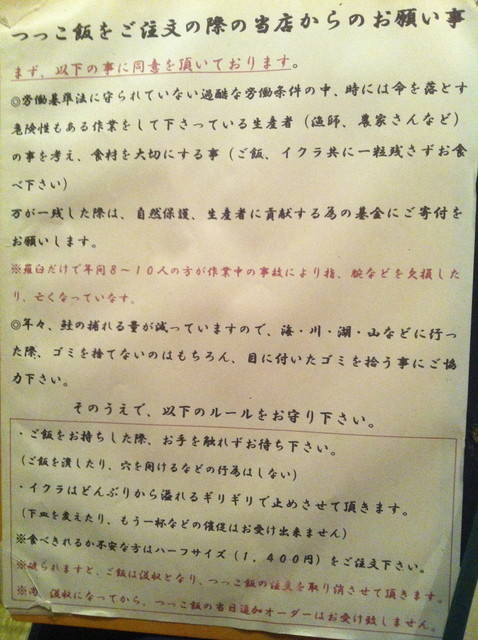 つっこ飯をご注文の際の当店からのお願い事
まず、以下の事に同意を頂いております。
◎労働基準法に守られていない過酷な労働条件の中、時には命を落とす
危険性もある作業をして下さっている生産者（漁師、農家さんなど）
の事を考え、食材を大切にする事（ご飯、イクラ共に一粒残さずお食
べ下さい）
万が一残した際は、自然保護、生産者に貢献する為の基金にご寄付を
お願いします。
※羅臼だけで年間８～１０人の方が作業中の事故により指、腕などを欠損した
り、亡くなっています。
◎年々、鮭の捕れる量が減っていますので、海・川・湖・山などに行っ
た際、ゴミを捨てないのはもちろん、目に付いたゴミを拾う事にご協
力下さい。
そのうえで、以下のルールをお守り下さい。
・ご飯をお持ちした際、お手を触れずお待ち下さい。
（ご飯を潰したり、穴を開けるなどの行為はしない）
・イクラはどんぶりから溢れるギリギリで止めさせて頂きます。
（下皿を変えたり、もう一杯などの催促はお受け出来ません）
※食べきれるか不安な方はハーフサイズ（１，４００円）をご注文下さい。
※破られますと、ご飯は没収となり、つっこ飯の注文を取り消させて頂きます。
※尚、没収になってから、つっこ飯の当日追加オーダーはお受け致しません。